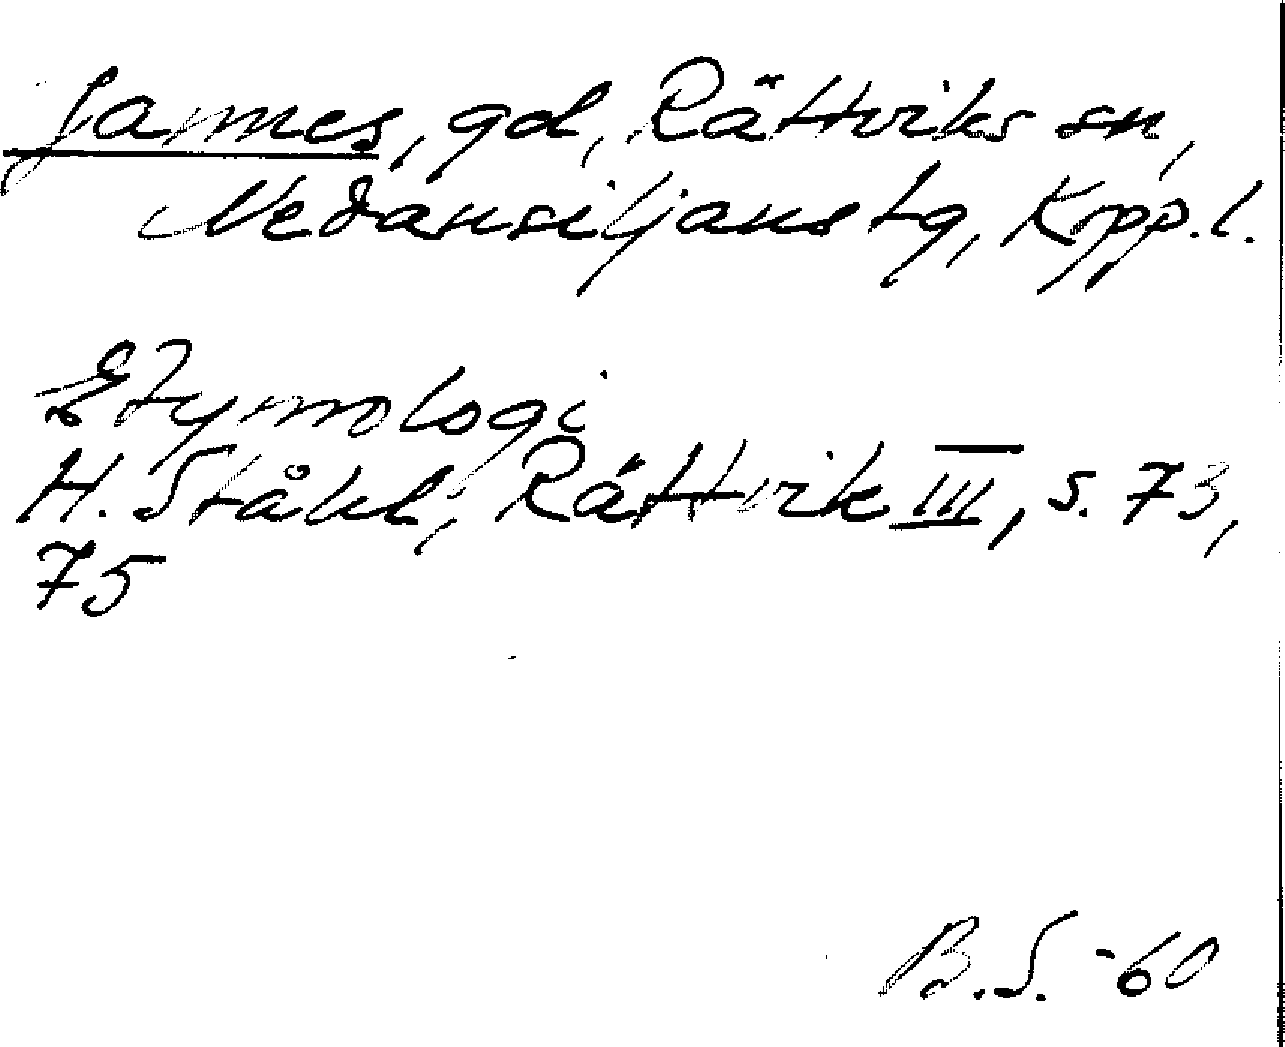 Jannes, gd, Rättviks sn,
Nedansiljans tg, Kopp.l.
Etymologi
H. Ståhl, Rättvik III, s. 73,
75
B.S. -60